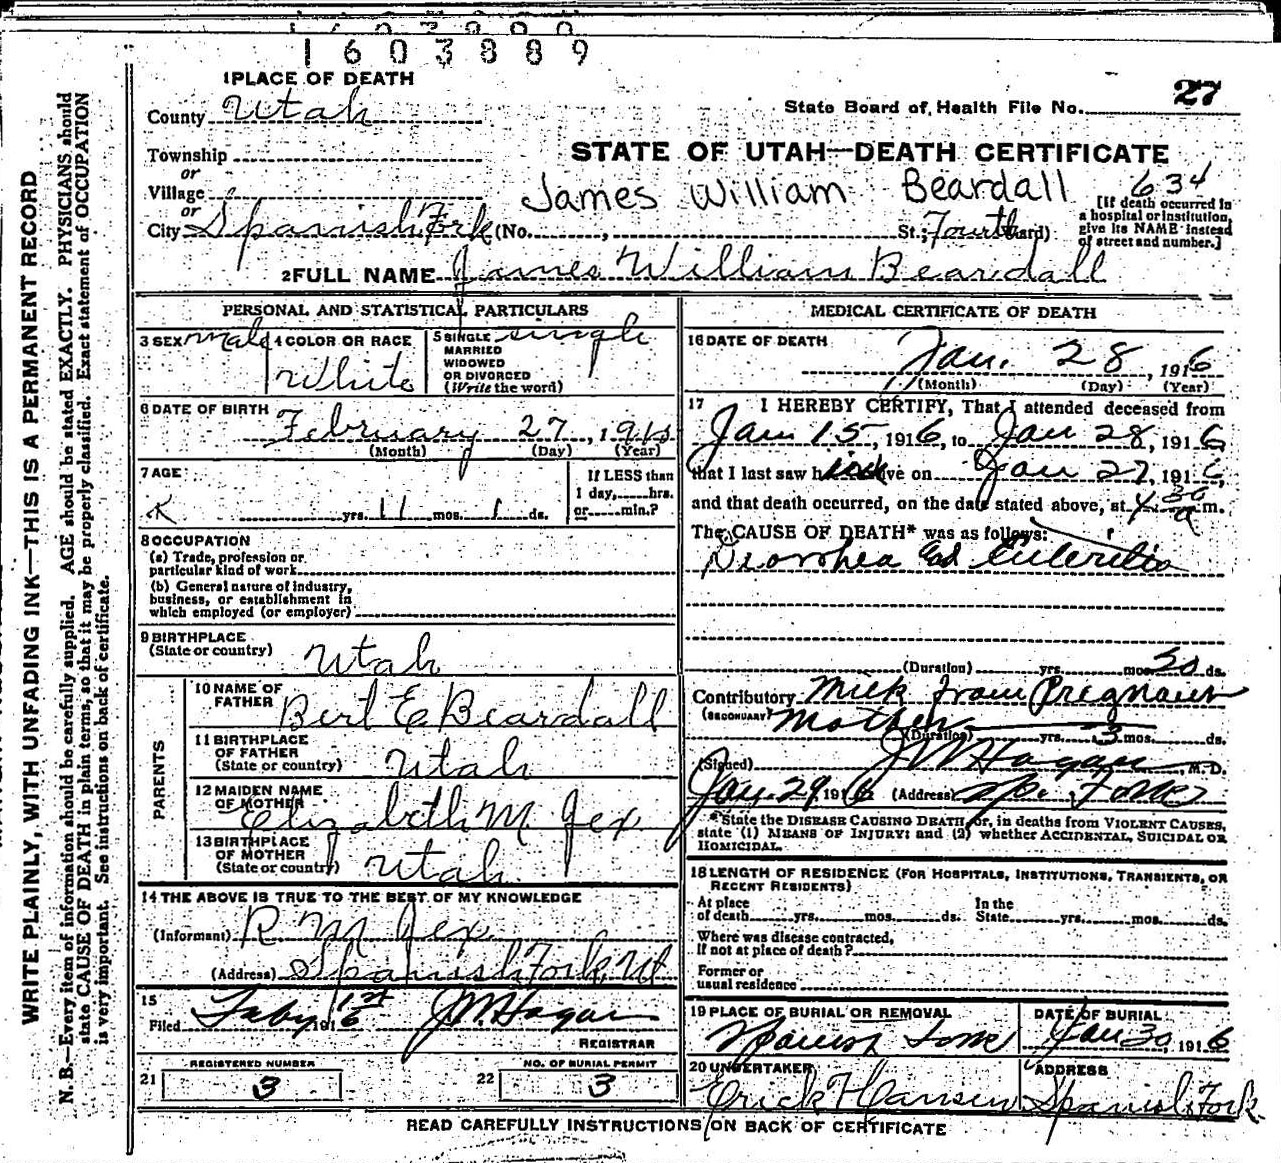 1603889
1 PLACE OF DEATH
County Utah
State Board of Health File No. 27
Township
or
Village
or
City Spanish Fork (No. , St.; Fourth Ward)
STATE OF UTAH—DEATH CERTIFICATE
James William Beardall 634
[If death occurred in a hospital or institution, give its NAME instead of street and number.]
2 FULL NAME James William Beardall
PERSONAL AND STATISTICAL PARTICULARS
3 SEX male
4 COLOR OR RACE White
5 SINGLE MARRIED WIDOWED OR DIVORCED (Write the word) single
6 DATE OF BIRTH
February 27, 191
(Month) (Day) (Year)
7 AGE
yrs. 11 mos. 1 ds.
If LESS than 1 day, hrs. or min.?
8 OCCUPATION
(a) Trade, profession or particular kind of work
(b) General nature of industry, business, or establishment in which employed (or employer)
9 BIRTHPLACE
(State or country) Utah
PARENTS
10 NAME OF FATHER Bert E Beardall
11 BIRTHPLACE OF FATHER (State or country) Utah
12 MAIDEN NAME OF MOTHER Elizabeth M Jex
13 BIRTHPLACE OF MOTHER (State or country) Utah
14 THE ABOVE IS TRUE TO THE BEST OF MY KNOWLEDGE
(Informant) R M Jex
(Address) Spanish Fork, Ut
15
Filed Feby 1st 1916 J W Hagan
REGISTRAR
REGISTERED NUMBER
21 3
NO. OF BURIAL PERMIT
22 3
MEDICAL CERTIFICATE OF DEATH
16 DATE OF DEATH
Jan. 28, 1916
(Month) (Day) (Year)
17 I HEREBY CERTIFY, That I attended deceased from
Jan 15, 1916, to Jan 28, 1916
that I last saw him alive on Jan 27, 1916,
and that death occurred, on the date stated above, at 4 30 a m.
The CAUSE OF DEATH* was as follows:
Diorrhea and Enteritis
(Duration) yrs. mos. ds.
Contributory Milk from Pregnant
(SECONDARY) Mother
(Duration) yrs. 3 mos. ds.
(Signed) J W Hagan, M. D.
Jan. 29, 1916 (Address) Sp. Fork
*State the DISEASE CAUSING DEATH, or, in deaths from VIOLENT CAUSES, state (1) MEANS OF INJURY; and (2) whether ACCIDENTAL, SUICIDAL OR HOMICIDAL.
18 LENGTH OF RESIDENCE (FOR HOSPITALS, INSTITUTIONS, TRANSIENTS, OR RECENT RESIDENTS)
At place of death yrs. mos. ds. In the State yrs. mos. ds.
Where was disease contracted, if not at place of death?
Former or usual residence
19 PLACE OF BURIAL OR REMOVAL
Spanish Fork
DATE OF BURIAL
Jan 30, 1916
20 UNDERTAKER
Erick Hansen
ADDRESS
Spanish Fork
READ CAREFULLY INSTRUCTIONS ON BACK OF CERTIFICATE
WRITE PLAINLY, WITH UNFADING INK—THIS IS A PERMANENT RECORD
N. B.—Every item of information should be carefully supplied. AGE should be stated EXACTLY. PHYSICIANS should
state CAUSE OF DEATH in plain terms, so that it may be properly classified. Exact statement of OCCUPATION
is very important. See instructions on back of certificate.